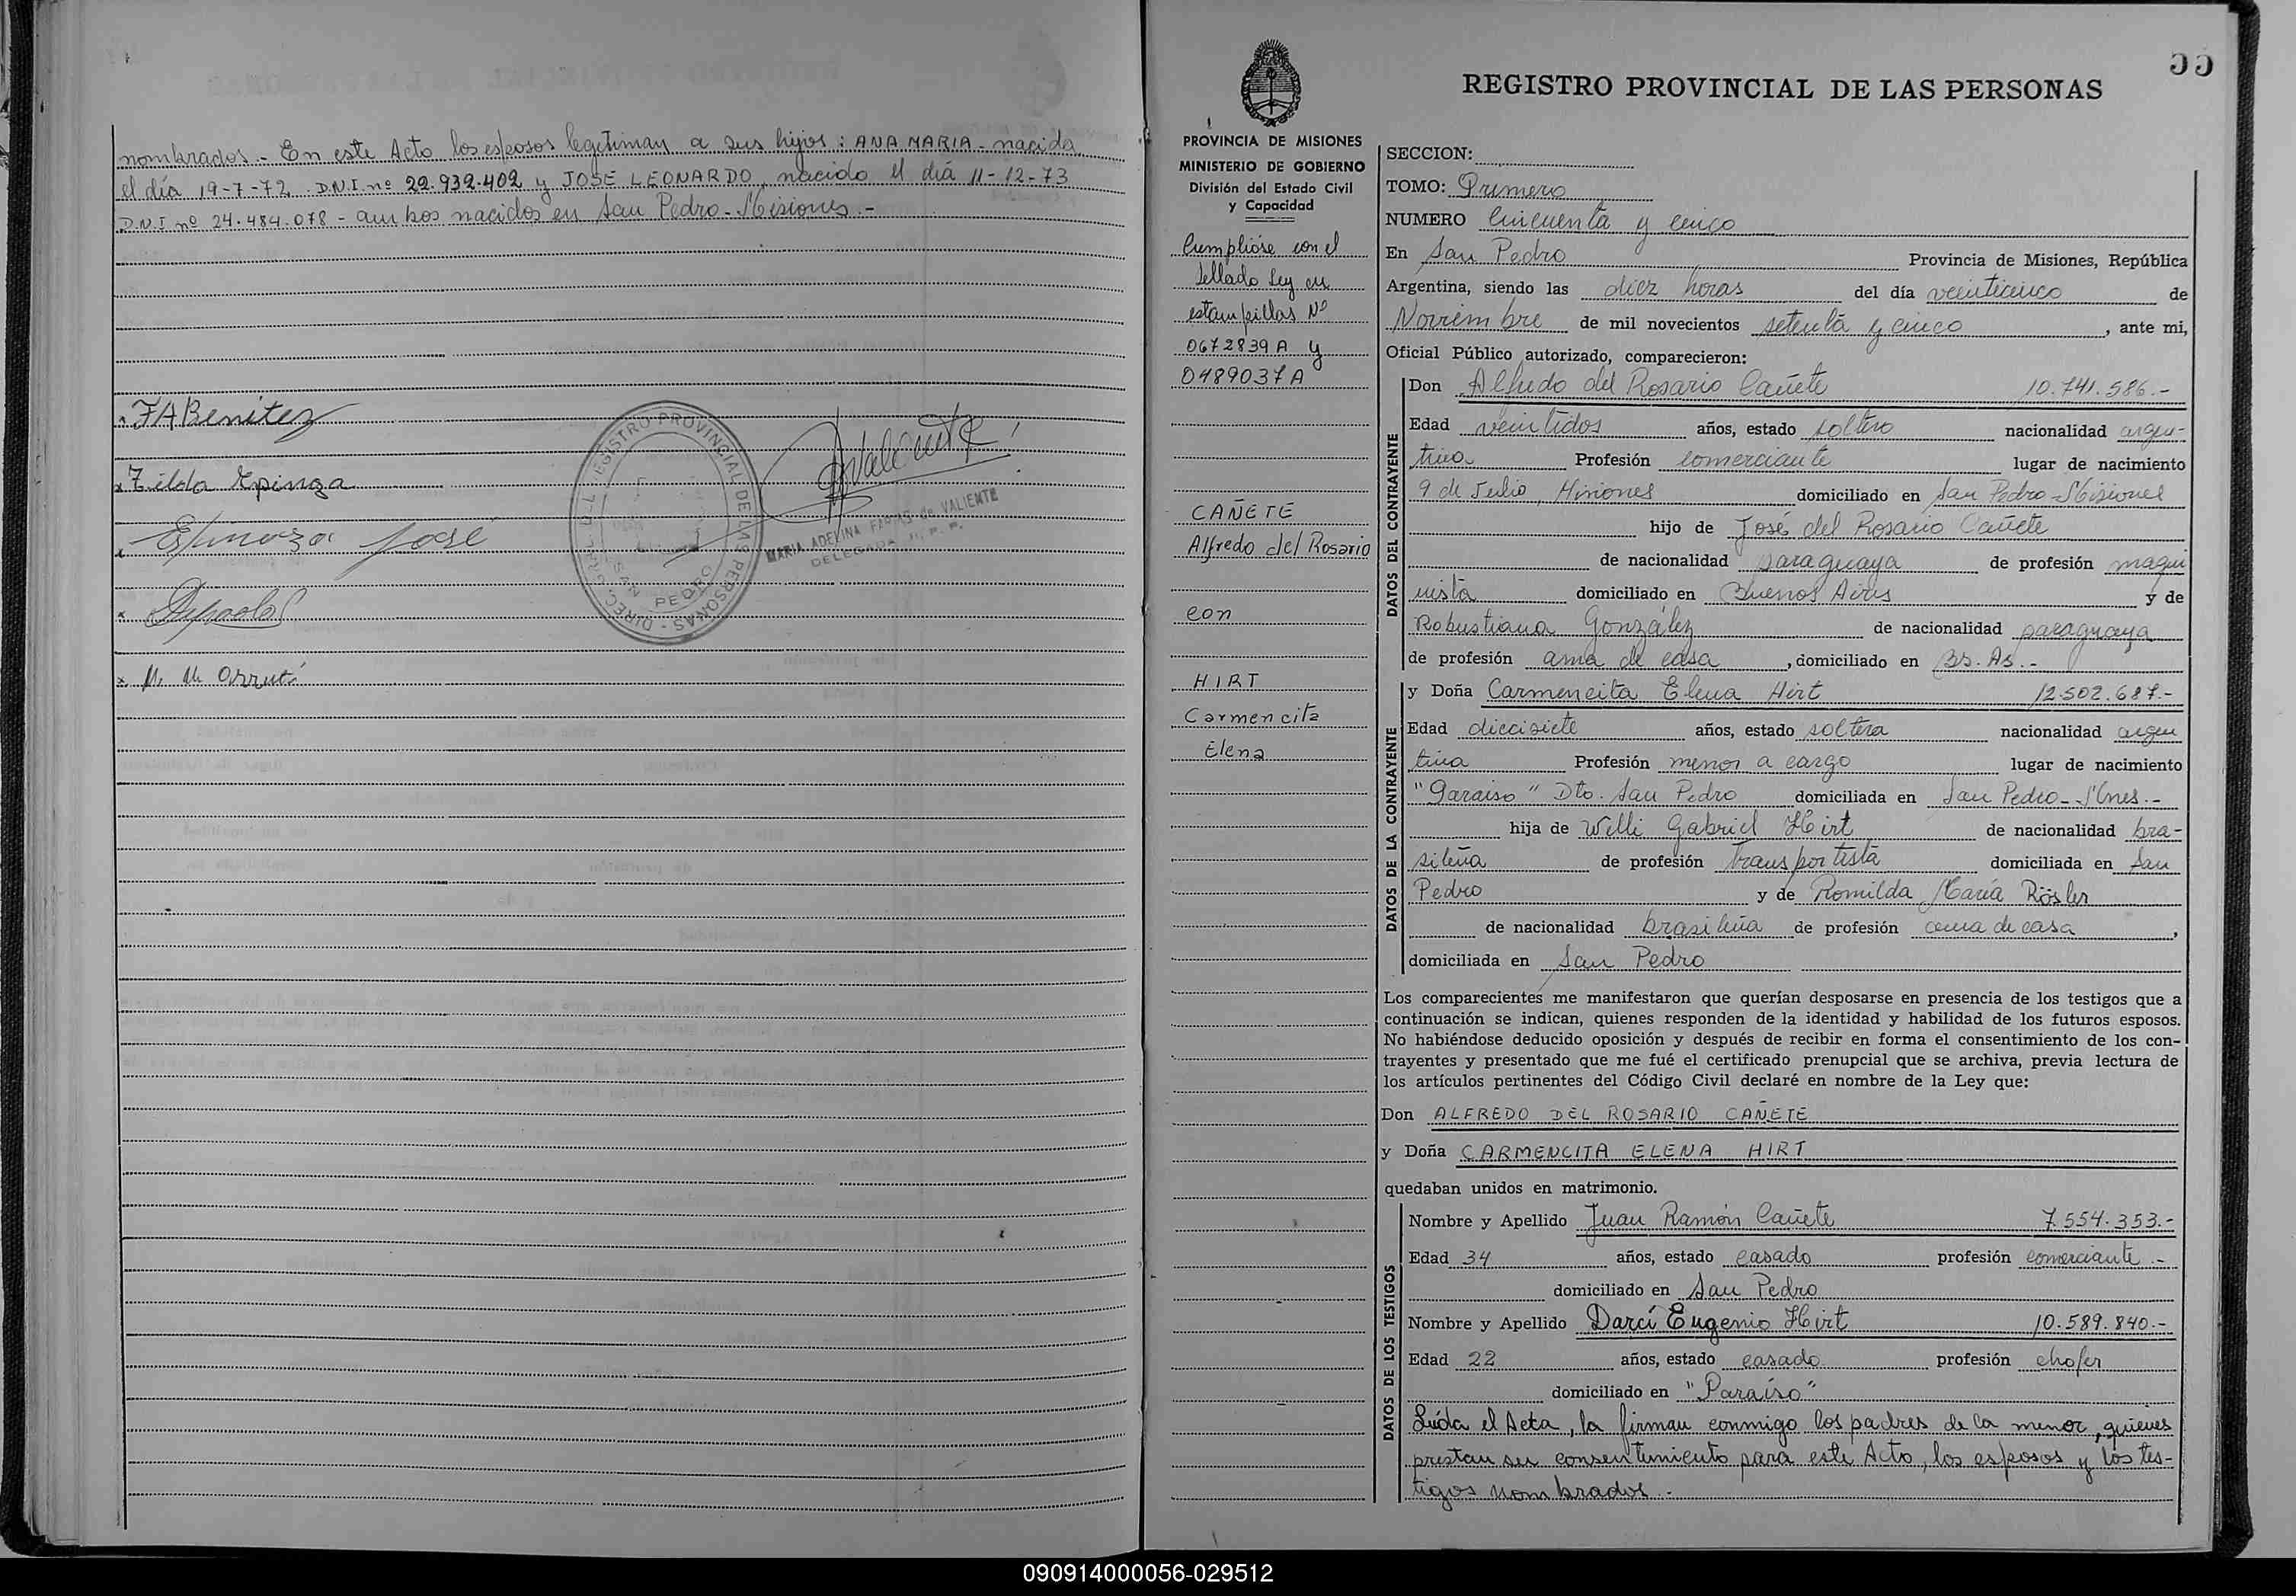 nombrados.- En este Acto los esposos legitiman a sus hijos: ANA MARIA - nacida
el día 19-7-72 D.N.I. nº 22.932.402 y JOSE LEONARDO, nacido el día 11-12-73
D.N.I nº 24.484.078 - ambos nacidos en San Pedro - Misiones.-
FABenitez
Zilda Espinoza
Espinoza José
M. M. Arruti
REGISTRO PROVINCIAL DE LAS PERSONAS
SAN PEDRO
MARIA ADELINA FARIAS de VALIENTE
DELEGADA
55
REGISTRO PROVINCIAL DE LAS PERSONAS
PROVINCIA DE MISIONES
MINISTERIO DE GOBIERNO
División del Estado Civil
y Capacidad
Cumplióse con el
Sellado Ley en
estampillas Nº
0672839 A y
0489037 A
CAÑETE
Alfredo del Rosario
con
HIRT
Carmencita
Elena
SECCION:
TOMO: Primero
NUMERO Cincuenta y cinco
En San Pedro Provincia de Misiones, República
Argentina, siendo las diez horas del día veinticinco de
Noviembre de mil novecientos setenta y cinco, ante mi,
Oficial Público autorizado, comparecieron:
DATOS DEL CONTRAYENTE
Don Alfredo del Rosario Cañete 10.741.586.-
Edad veintidos años, estado soltero nacionalidad argen-
tina Profesión comerciante lugar de nacimiento
9 de Julio, Misiones domiciliado en San Pedro - Misiones
hijo de José del Rosario Cañete
de nacionalidad paraguaya de profesión maqui
nista domiciliado en Buenos Aires y de
Robustiana González de nacionalidad paraguaya
de profesión ama de casa, domiciliado en Bs. As. -
DATOS DE LA CONTRAYENTE
y Doña Carmencita Elena Hirt 12.502.687.-
Edad diecisiete años, estado soltera nacionalidad argen
tina Profesión menor a cargo lugar de nacimiento
"Paraiso" Dto. San Pedro domiciliada en San Pedro - Mnes.-
hija de Willi Gabriel Hirt de nacionalidad bra-
sileña de profesión transportista domiciliada en San
Pedro y de Romilda María Rösler
de nacionalidad brasileña de profesión ama de casa,
domiciliada en San Pedro
Los comparecientes me manifestaron que querían desposarse en presencia de los testigos que a
continuación se indican, quienes responden de la identidad y habilidad de los futuros esposos.
No habiéndose deducido oposición y después de recibir en forma el consentimiento de los con-
trayentes y presentado que me fué el certificado prenupcial que se archiva, previa lectura de
los artículos pertinentes del Código Civil declaré en nombre de la Ley que:
Don ALFREDO DEL ROSARIO CAÑETE
y Doña CARMENCITA ELENA HIRT
quedaban unidos en matrimonio.
DATOS DE LOS TESTIGOS
Nombre y Apellido Juan Ramón Cañete 7.554.353.-
Edad 34 años, estado casado profesión comerciante.-
domiciliado en San Pedro
Nombre y Apellido Darci Eugenio Hirt 10.589.840.-
Edad 22 años, estado casado profesión chofer
domiciliado en "Paraíso"
Leída el Acta, la firman conmigo los padres de la menor, quienes
prestan su consentimiento para este Acto, los esposos y los tes-
tigos nombrados.-
090914000056-029512